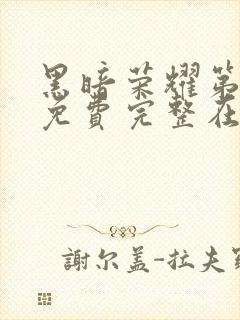 黑暗荣耀第
免費完整在
謝尔盖-拉夫